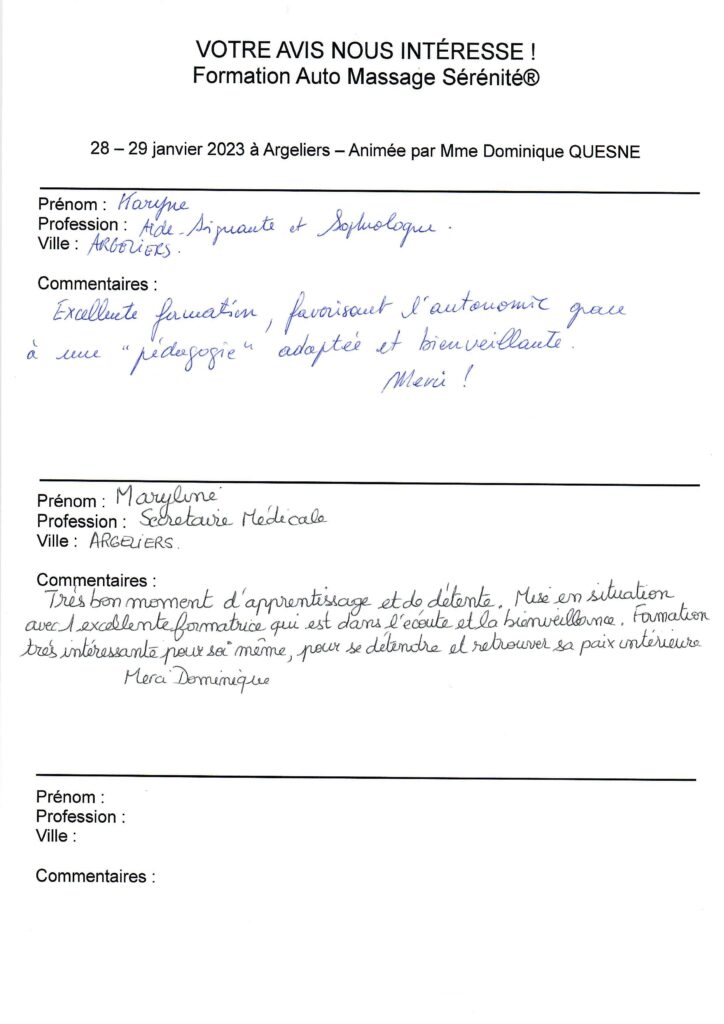 VOTRE AVIS NOUS INTÉRESSE !
Formation Auto Massage Sérénité®
28 – 29 janvier 2023 à Argeliers – Animée par Mme Dominique QUESNE
Prénom : Karyne
Profession : Aide-Signante et Sophrologue.
Ville : ARGELIERS.
Commentaires :
Excellente formation, favorisant l'autonomie grace
à une "pédagogie" adaptée et bienveillante.
Merci !
Prénom : Maryline
Profession : Secrétaire Médicale
Ville : ARGELIERS.
Commentaires :
Très bon moment d'apprentissage et de détente. Mise en situation
avec 1 excellente formatrice qui est dans l'écoute et la bienveillance. Formation
très intéressante pour soi même, pour se détendre et retrouver sa paix intérieure
Merci Dominique
Prénom :
Profession :
Ville :
Commentaires :